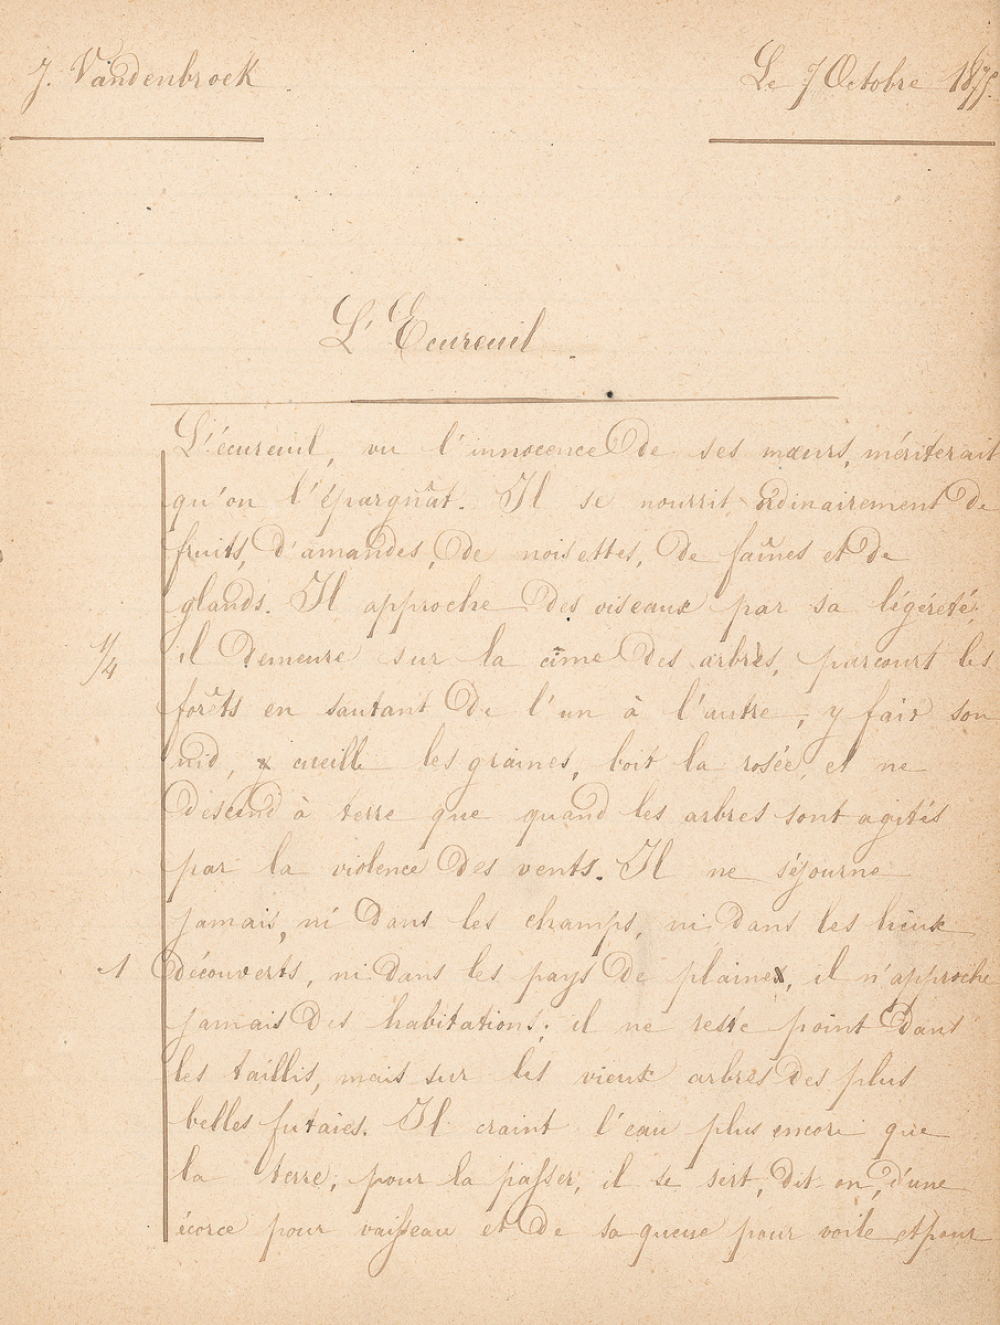 J. Vandenbroek
Le 7 Octobre 1875.
L'Ecureuil
L'écureuil, vu l'innocence de ses mœurs, mériterait
qu'on l'épargnât. Il se nourrit ordinairement de
fruits, d'amandes, de noisettes, de faînes et de
glands. Il approche des oiseaux par sa légéreté,
1/4
il demeure sur la cime des arbres, parcourt les
forêts en sautant de l'un à l'autre, y fait son
nid, cueille les graines, boit la rosée, et ne
descend à terre que quand les arbres sont agités
par la violence des vents. Il ne séjourne
jamais, ni dans les champs, ni dans les lieux
1
découverts, ni dans les pays de plaine, il n'approche
jamais des habitations; il ne reste point dans
les taillis, mais sur les vieux arbres des plus
belles futaies. Il craint l'eau plus encore que
la terre; pour la passer, il se sert, dit-on, d'une
écorce pour vaisseau et de sa queue pour voile et pour